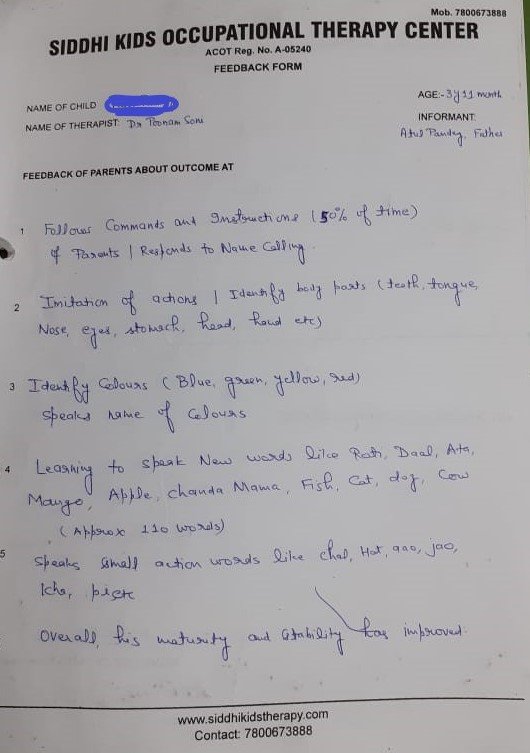 Mob. 7800673888
SIDDHI KIDS OCCUPATIONAL THERAPY CENTER
ACOT Reg. No. A-05240
FEEDBACK FORM
NAME OF CHILD
AGE:- 3y 11 month
NAME OF THERAPIST: Dr Poonam Soni
INFORMANT:
Atul Pandey, Father
FEEDBACK OF PARENTS ABOUT OUTCOME AT
1 Follows Commands and Instructions (50% of time)
of Parents | Responds to Name Calling.
2 Imitation of actions | Identify body parts (teeth, tongue,
Nose, eyes, stomach, head, hand etc)
3 Identify Colours (Blue, green, yellow, red)
Speaks name of Colours
4 Learning to speak New words like Roti, Daal, Ata,
Mango, Apple, Chanda Mama, Fish, Cat, dog, Cow
(Approx 110 words)
5 Speaks small action words like chal, Hat, aao, jao,
Overall, his maturity and stability has improved.
www.siddhikidstherapy.com
Contact: 7800673888